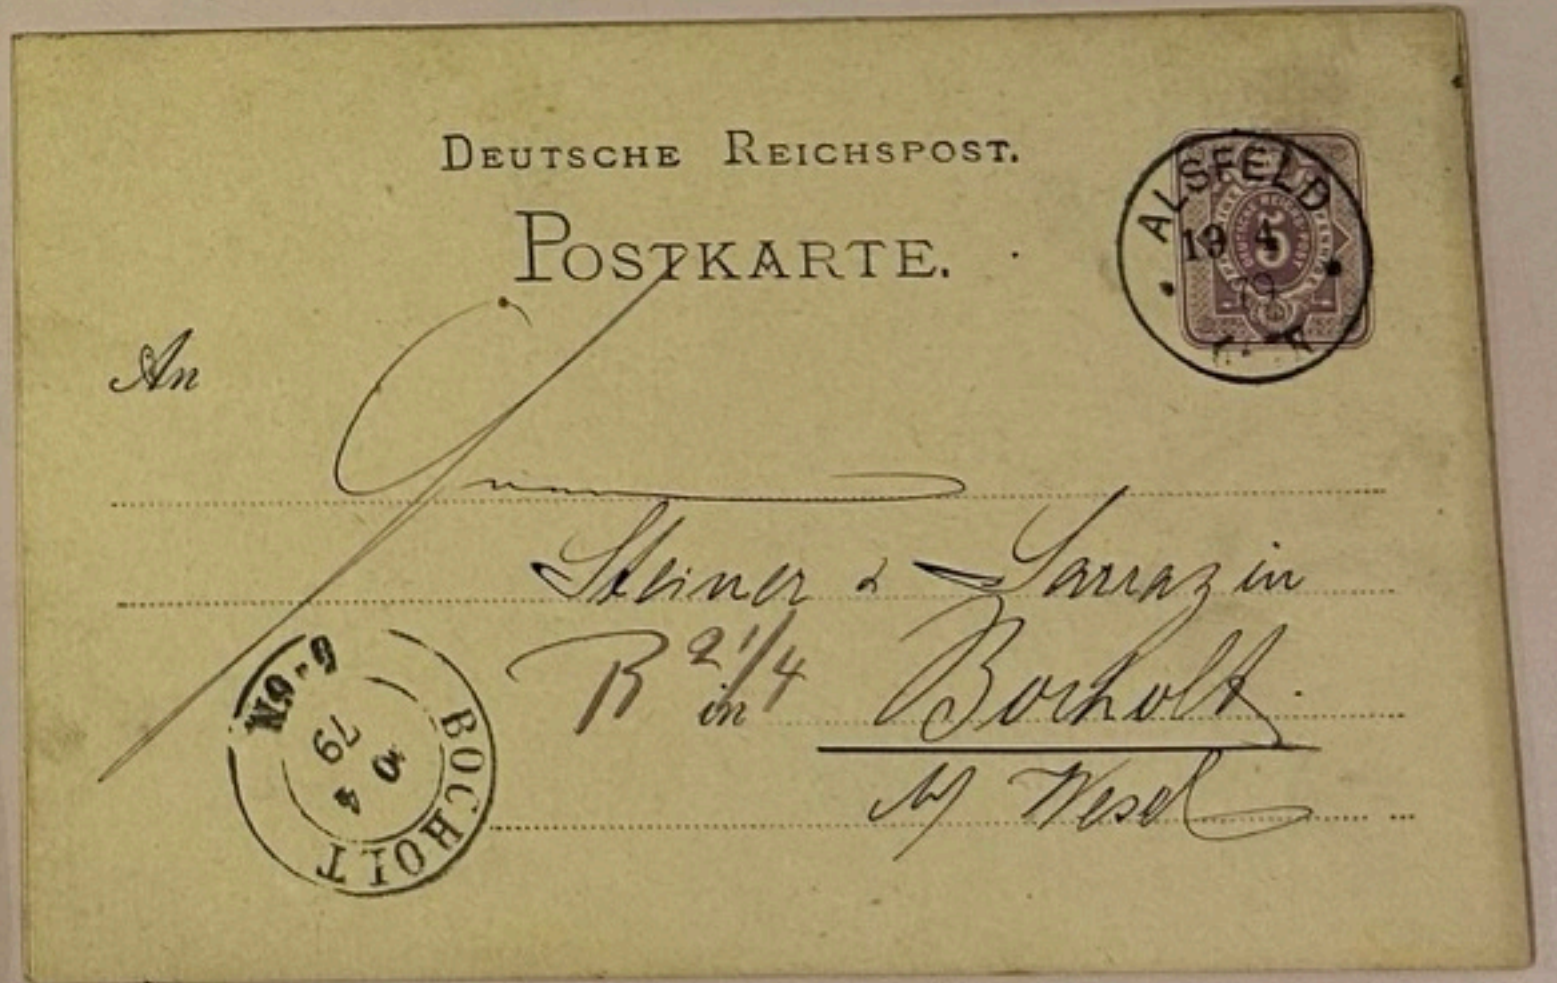 DEUTSCHE REICHSPOST.
POSTKARTE.
ALSFELD
19 4
79
5
An
Steiner & Sarrazin
R 2 1/4
in Bocholt.
Wesel
BOCHOLT
4
79
6-9N